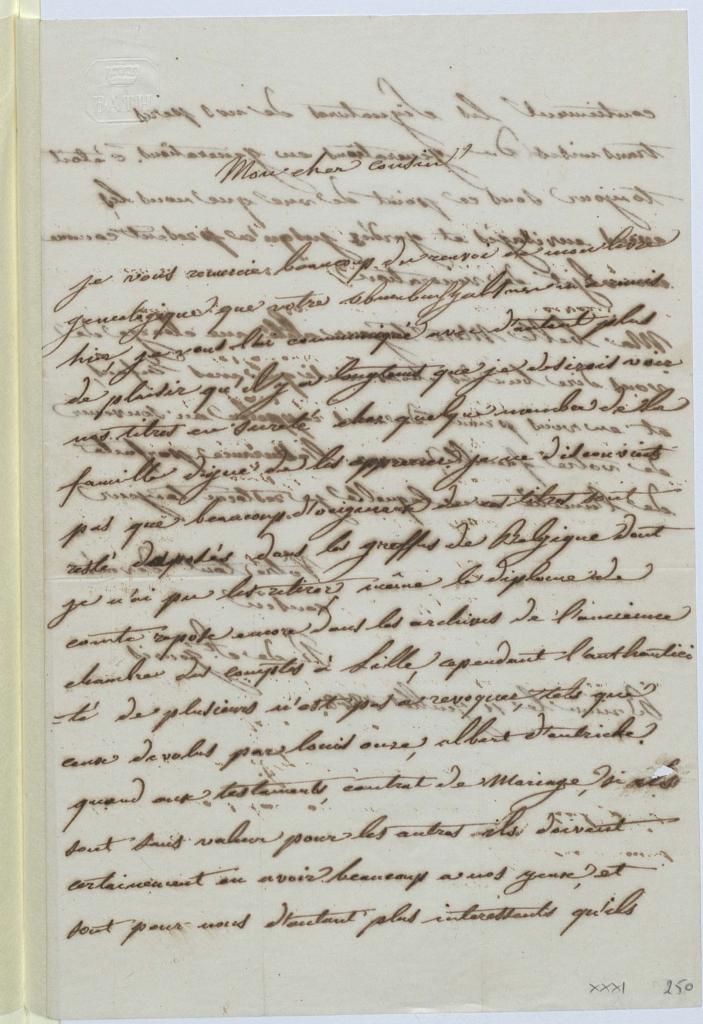 BATH
Mon cher cousin!
je vous remercie beaucoup du renvoi de mon livre
genealogique que votre m'a remis
hier, je vous l'ai communiqué avec d'autant plus
de plaisir qu'il y a longtems que je desirois voir
nos titres en sureté chez quelque membre de la
famille digne de les apprecier. je ne disconviens
pas que beaucoup d'origineaux de ces titres sont
resté deposés dans les greffes de Belgique dont
je n'ai pu les retirer, même le diplome de
comte repose encore dans les archives de l'ancienne
chambre des comptes à Lille, cependant l'authentici
-té de plusieurs n'est pas a revoquer tels que
ceux de valus par louis onze, albert d'autriche.
quand aux testaments, contrat de Mariage, si ils
sont sans valeur pour les autres ils doivent
certainement en avoir beaucoup a nos yeux, et
sont pour nous d'autant plus interessents qu'ils
XXXI 250